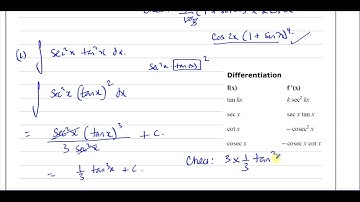 cos 2x (1 + sin2x)⁹. ✓
(c) ∫ sec²x tan²x dx.
sec²x [tanx]²
∫ sec²x (tanx)² dx
= sec²x (tanx)³ / 3 sec²x + c.
= 1/3 tan³x + c.
Differentiation
f(x) f'(x)
tan kx k sec² kx
sec x sec x tan x
cot x – cosec² x
cosec x – cosec x cot x
Check: 3 x 1/3 tan²x